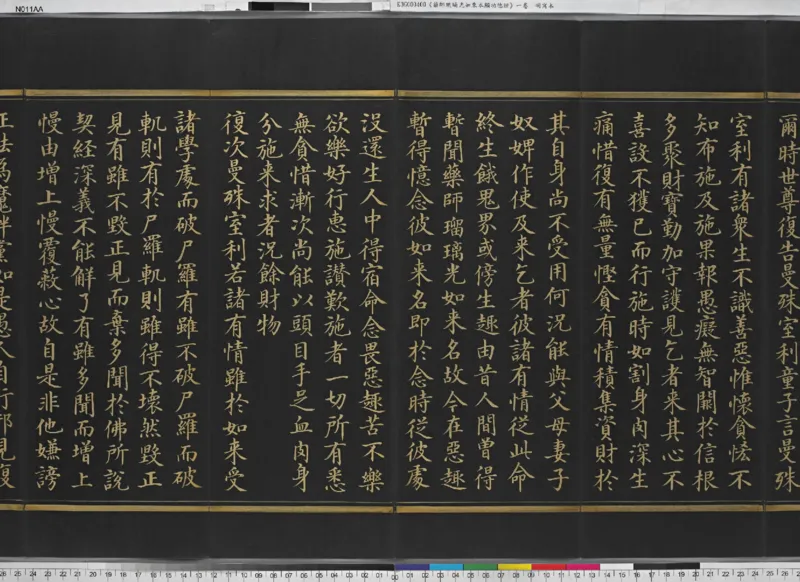 N011AA
爾時世尊復告曼殊室利童子言曼殊
室利有諸衆生不識善惡惟懷貪恡不
知布施及施果報愚癡無智闕於信根
多聚財寶勤加守護見乞者来其心不
喜設不獲已而行施時如割身肉深生
痛惜復有無量慳貪有情積集資財於
其自身尚不受用何況能與父母妻子
奴婢作使及来乞者彼諸有情從此命
終生餓鬼界或傍生趣由昔人間曾得
暫聞藥師瑠璃光如来名故今在惡趣
暫得憶念彼如来名即於念時從彼處
沒還生人中得宿命念畏惡趣苦不樂
欲樂好行惠施讃歎施者一切所有悉
無貪惜漸次尚能以頭目手足血肉身
分施来求者況餘財物
復次曼殊室利若諸有情雖於如来受
諸學處而破尸羅有雖不破尸羅而破
軌則有於尸羅軌則雖得不壞然毀正
見有雖不毀正見而棄多聞於佛所說
契経深義不能解了有雖多聞而增上
慢由增上慢覆蔽心故自是非他嫌謗
正法為魔伴黨如是愚人自行邪見復